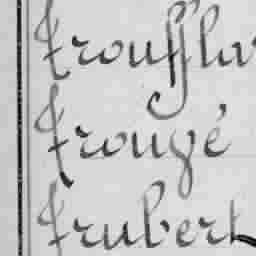 Trouffla
Trougé
Trubert